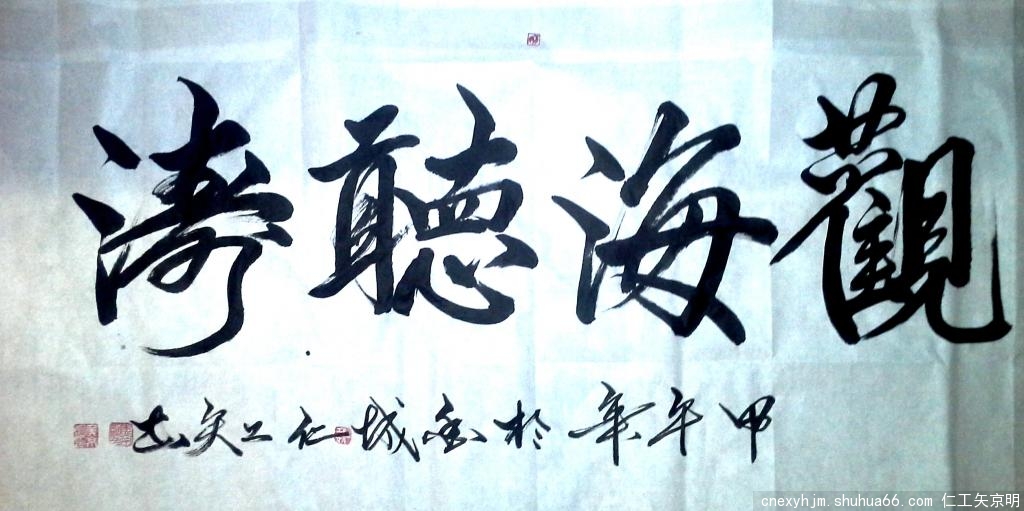 觀海聽濤
甲午年於城仁工矢
cnexyhjm.shuhua66.com 仁工矢京明